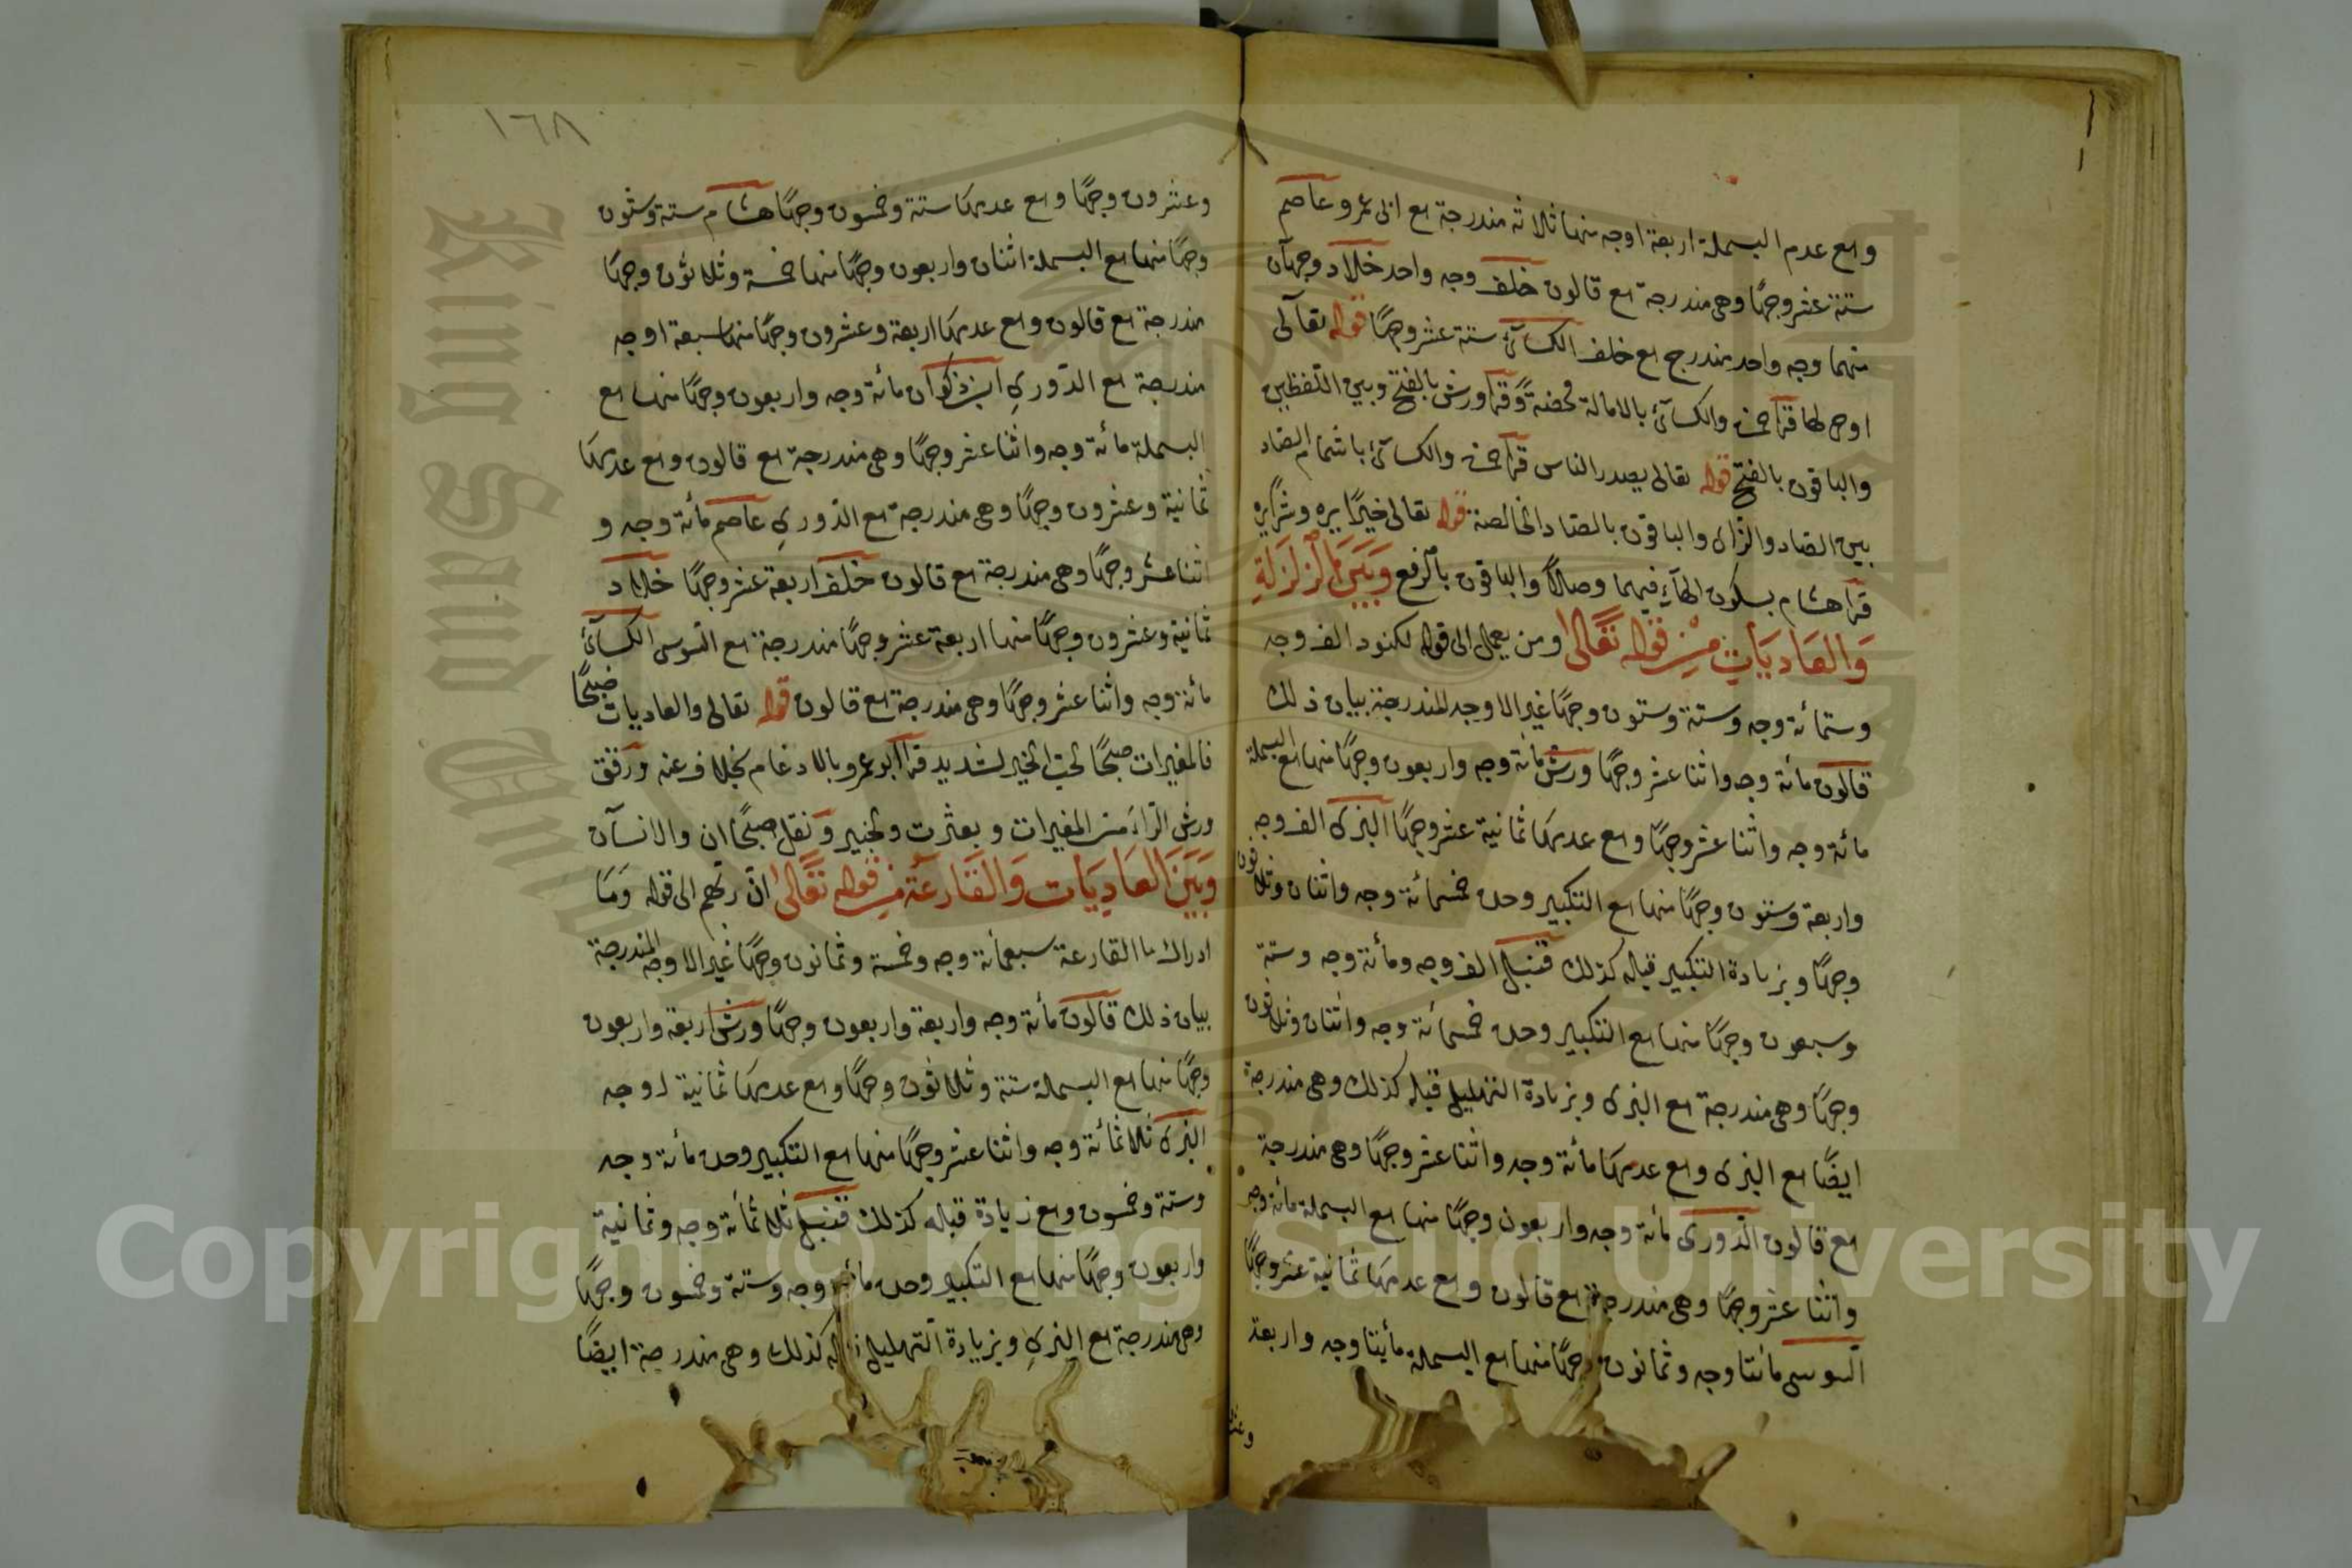 ومع عدم البسملة اربعة اوجه منها ثلاثة مندرجة مع ابى عمرو عاصم
ستة عشر وجهًا وهى مندرجة مع قالون خلف وجه واحد خلاد وجهان
منهما وجه واحد مندرج مع خلف الكسآئ ستة عشر وجهًا قوله تعالى
اوحى لها قرا حمزة والكسآئ بالامالة محضة وقرا ورش بالفتح وبين اللفظين
والباقون بالفتح قوله تعالى يصدر الناس قرا حمزة والكسآئ باشمام الصاد
بين الصاد والزاى والباقون بالصاد الخالصة قوله تعالى خيرًا يره وشرًا يره
قرا هشام بسكون الهآءِ فيهما وصلاً والباقون بالرفع وَبَيْنَ الزَلْزَلَةِ
وَالعَادِيَاتِ مِنْ قَوْلِه تَعَالى ومن يعمل الى قوله لكنود الف وجه
وستمائة وجه وستة وستون وجهًا غير الاوجه المندرجة بيان ذلك
قالون مائة وجه واثنا عشر وجهًا ورش مائة وجه واربعون وجهًا منها مع البسملة
مائة وجه واثنا عشر وجهًا ومع عدمها ثمانية عشر وجهًا البزى الف وجه
واربعة وستون وجهًا منها مع التكبير وحده خمسمائة وجه واثنان وثلاثون
وجهًا وبزيادة التكبير قبله كذلك قنبل الف وجه ومائة وجه وستة
وسبعون وجهًا منها مع التكبير وحده خمسمائة وجه واثنان وثلاثون
وجهًا وهى مندرجة مع البزى وبزيادة التهليل قبله كذلك وهى مندرجة
ايضًا مع البزى ومع عدمها مائة وجه واثنا عشر وجهًا وهى مندرجة
مع قالون الدّورى مائة وجه واربعون وجهًا منها مع البسملة مائة وجه
واثنا عشر وجهًا وهى مندرجة مع قالون ومع عدمها ثمانية عشر وجهًا
السوسى مائتا وجه وثمانون وجهًا منها مع البسملة مأيتا وجه واربعة
١٦٨
وعشرون وجهًا ومع عدمها ستة وخمسون وجهًا هشام ستة وستون
وجهًا منها مع البسملة اثنان واربعون وجهًا منها خمسة وثلاثون وجهًا
مندرجة مع قالون ومع عدمها اربعة وعشرون وجهًا منها سبعة اوجه
مندرجة مع الدّورىِ ابن ذكوان مائة وجه واربعون وجهًا منها مع
البسملة مائة وجه واثنا عشر وجهًا وهى مندرجة مع قالون ومع عدمها
ثمانية وعشرون وجهًا وهى مندرجة مع الدّورىِ عاصم مائة وجه و
اثنا عشر وجهًا وهى مندرجة مع قالون خلف اربعة عشر وجهًا خلاد
ثمانية وعشرون وجهًا منها اربعة عشر وجهًا مندرجة مع السوسى الكسآئ
مائة وجه واثنا عشر وجهًا وهى مندرجة مع قالون قوله تعالى والعاديات ضبحًا
فالمغيرات صبحًا لحب الخير لشديد قرا ابو عمرو بالادغام بخلاف عنه ورقق
ورش الرّاءَ من المغيرات وبعثرت ولخبير ونقل صبحًا ان والانسآن
وَبَيْنَ العَادِيَات وَالقَارِعَة مِنْ قَوْلِه تَعَالى انّ ربّهم الى قوله وَمَا
ادراك ما القارعة سبعمائة وجه وخمسة وثمانون وجهًا غير الاوجه المندرجة
بيان ذلك قالون مائة وجه واربعة واربعون وجهًا ورش اربعة واربعون
وجهًا منها مع البسملة ستة وثلاثون وجهًا ومع عدمها ثمانية اوجه
البزى ثلاثمائة وجه واثنا عشر وجهًا منها مع التكبير وحده مائة وجه
وستة وخمسون ومع زيادة قبله كذلك قنبل ثلاثمائة وجه وثمانية
واربعون وجهًا منها مع التكبير وحده مائة وجه وستة وخمسون وجهًا
وهى مندرجة مع البزىِ وبزيادة التهليل كذلك وهى مندرجة ايضًا
King Saud
Copyright © King Saud University